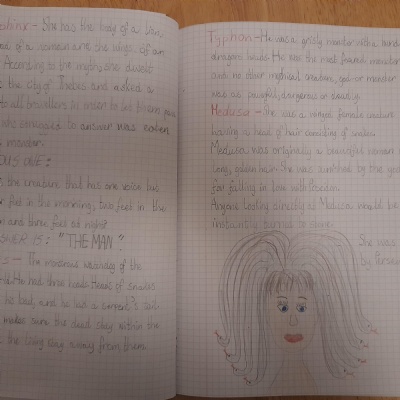 Sphinx - She has the body of a lion,
head of a woman and the wings of an
According to the myth, she dwelt
the city of Thebes and asked a
to all travellers in order to let them pass
who struggled to answer was eaten
monster.
OUS ONE:
the creature that has one voice but
feet in the morning, two feet in the
and three feet at night?
ANSWER IS: "THE MAN".
The monstrous watchdog of the
He had three heads. Heads of snakes
his back, and he has a serpent's tail.
makes sure the dead stay within the
the living stay away from them.
Typhon - He was a grisly monster with a hundred
dragons heads. He was the most fearsome monster
and no other mythical creature, god or monster
was as powerful, dangerous or deadly.
Medusa - She was a winged female creature
having a head of hair consisting of snakes.
Medusa was originally a beautiful woman
long, golden hair. She was punished by the god
for falling in love with Poseidon.
Anyone looking directly at Medusa would be
instantly turned to stone.
She was
by Perseus